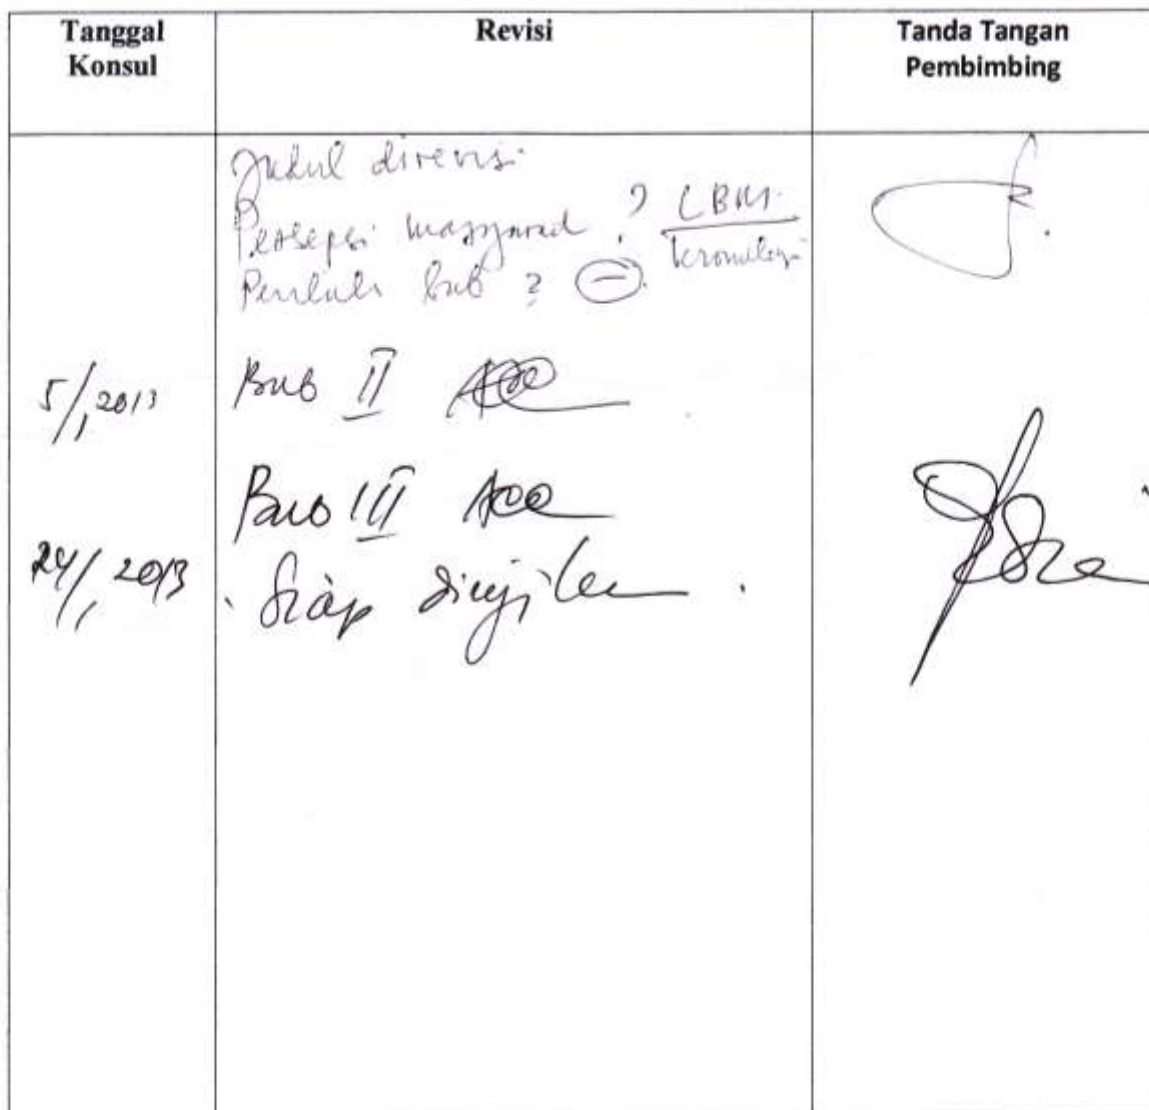 Tanggal Konsul
Revisi
Tanda Tangan Pembimbing
Judul direvisi
Persepsi masyarakat ? LBM
kronologi
bab ? -
5/1 2013
Bab II Acc
Bab III Acc
24/1 2013
Siap diujikan.